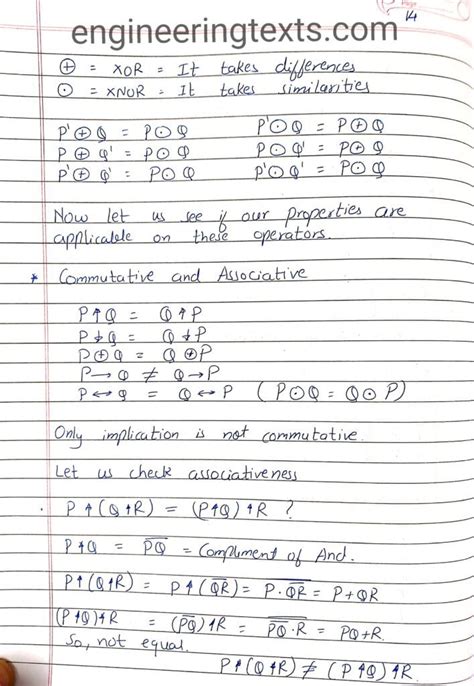 14
engineeringtexts.com
⊕ = XOR = It takes differences
⊙ = XNOR = It takes similarities
P'⊕Q = P⊙Q    P'⊙Q = P⊕Q
P⊕Q' = P⊙Q    P⊙Q' = P⊕Q
P'⊕Q' = P⊙Q    P'⊙Q' = P⊙Q
Now let us see if our properties are
applicable on these operators.
* Commutative and Associative
P↑Q = Q↑P
P↓Q = Q↓P
P⊕Q = Q⊕P
P→Q ≠ Q→P
P↔Q = Q↔P (P⊙Q = Q⊙P)
Only implication is not commutative.
Let us check associativeness
· P↑(Q↑R) = (P↑Q)↑R ?
P↑Q = P̅Q̅ = Compliment of And.
P↑(Q↑R) = P↑(Q̅R̅) = P·Q̅R̅ = P+QR
(P↑Q)↑R = (P̅Q̅)↑R = P̅Q̅·R = PQ+R.
So, not equal.
P↑(Q↑R) ≠ (P↑Q)↑R.